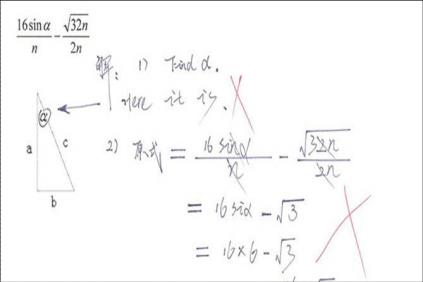 16sinα/n - √32n/2n
解: 1) Find α.
Here it is.
α
a
c
b
2) 原式 = 16 sinα/n - √32n/2n
= 16 siα - √3
= 16×6 - √3